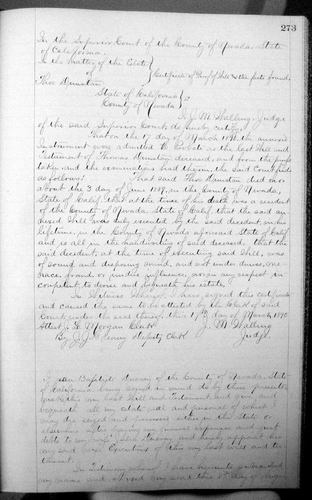 273
In the Superior Court of the County of Nevada, State
of California.
In the Matter of the Estate
of Certificate of Proof of Will & the facts found.
Thos
State of California
County of Nevada
I, J. M. Walling, Judge
of the said Superior Court, do hereby certify:
That on the 17 day of March 1890 the annexed
Instrument was admitted to Probate as the last Will and
Testament of Thomas deceased, and from the proofs
taken and the examination had therein, the said Court finds
as follows: That said Thos died on or
about the 3 day of June 1889, in the County of Nevada,
State of Calif, that at the time of his death he was a resident
of the County of Nevada, State of Calif, that the said an-
nexed Will was duly executed by the said decedent in his
lifetime, in the County of Nevada aforesaid State of Calif
and is all in the handwriting of said deceased that the
said decedent, at the time of executing said Will, was
of sound and disposing mind, and not under duress, men-
ace, fraud or undue influence, nor in any respect in
competent to devise and bequeath his estate.
In Witness Whereof, I have signed this certificate
and caused the same to be attested by the Clerk of said
Court under the seal thereof this 17th day of March 1890
Attest Morgan Clerk J. M. Walling
By J. J. Deputy Clerk Judge.
I, Jean Baptiste of the County of Nevada, State
of California being aged do by these presents
make this my last Will and Testament and give and
bequeath all my estate real and personal of which I
may die seized and possessed within this state or
elsewhere after paying my funeral expenses and just
debts to my and hereby appoint
said Executrix of this my last will and tes-
tament.
In Testimony whereof, I have hereunto subscribed
my name and affixed my seal this day of